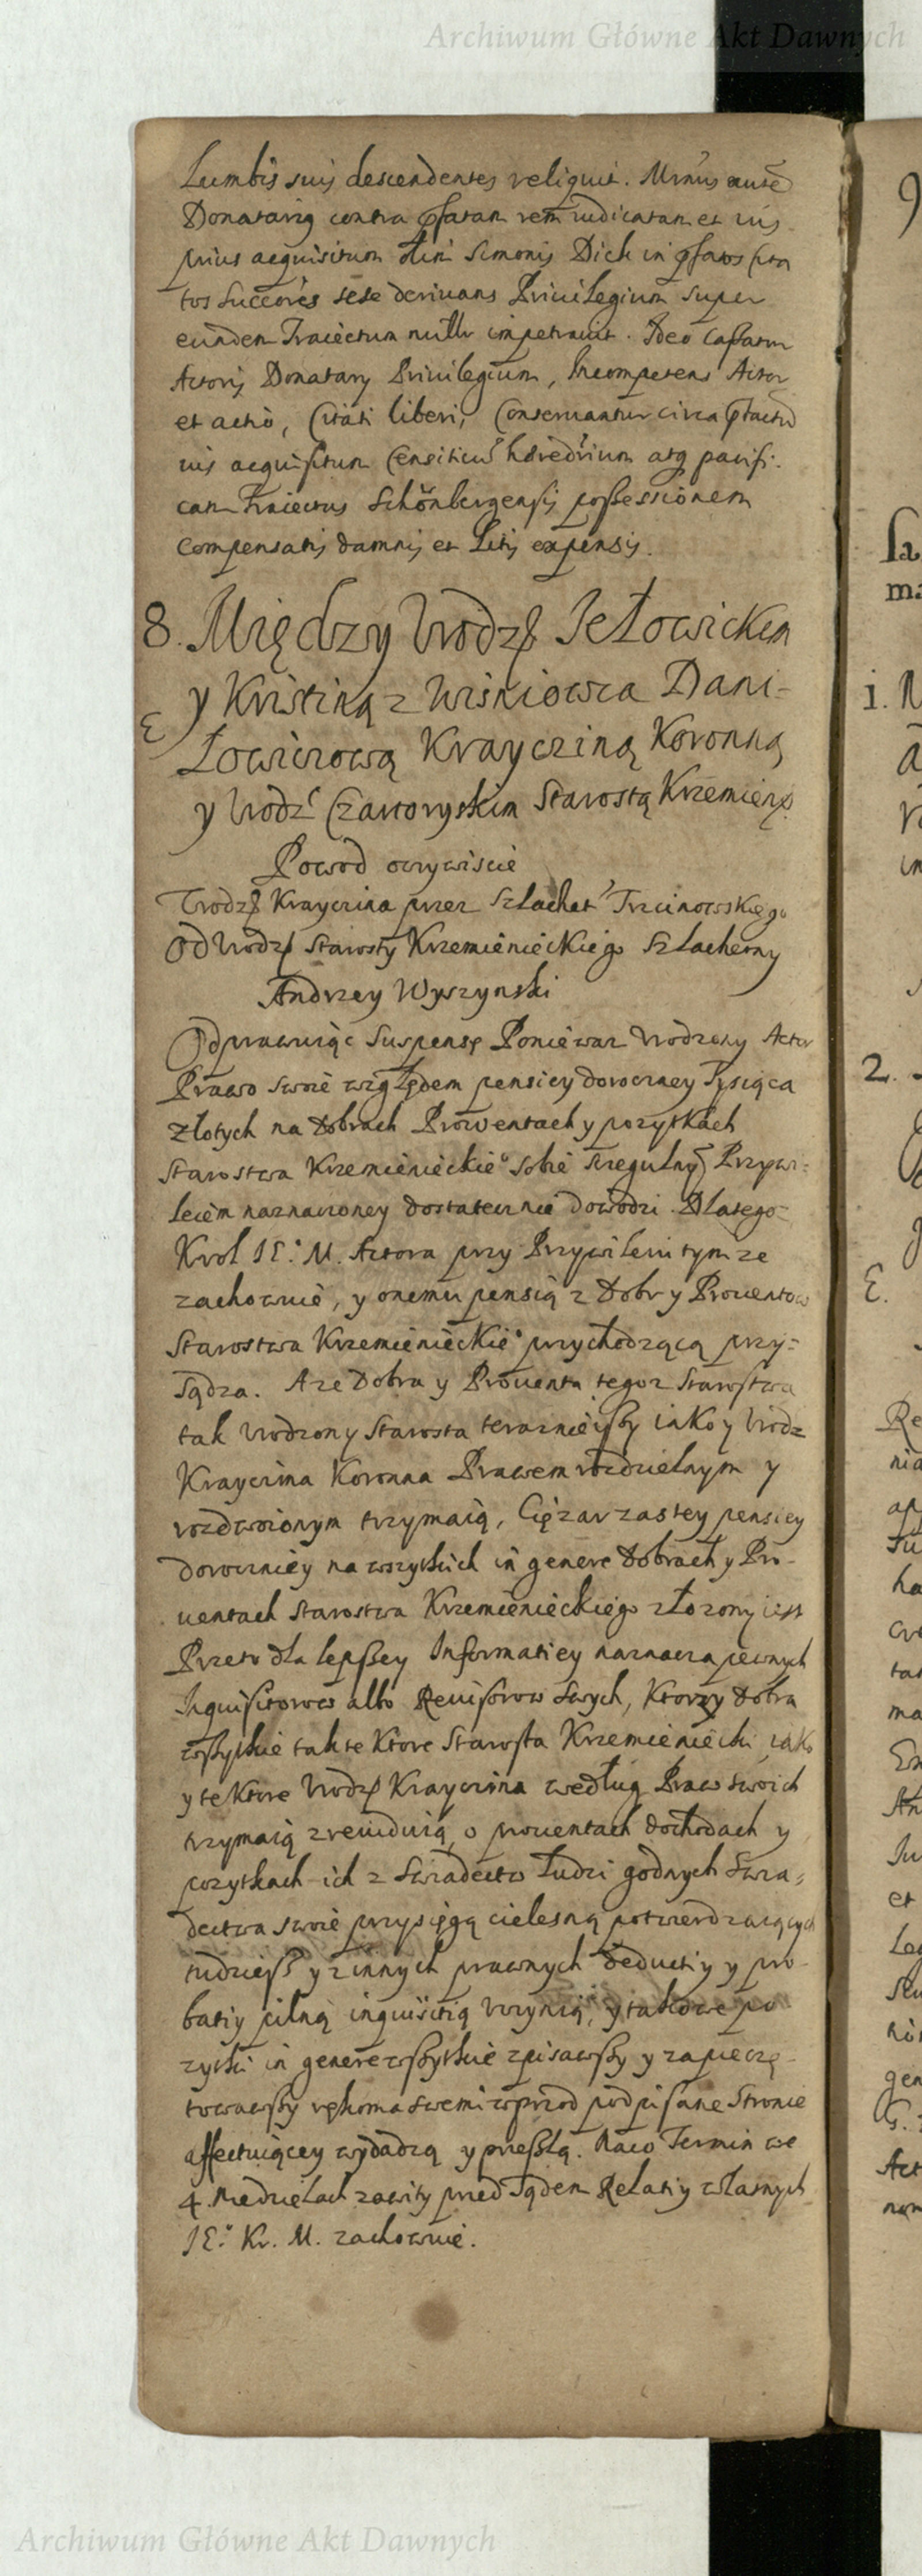 Archiwum Główne Akt Dawnych
Lumbis suis descendentes reliquit. Minus autē
Donatariq contra pſatam rem iudicatam et ius
prius aequisitum olim Simonis Dick in pſatos Cita
tos Succores sese deriuans Priuilegium super
eundem Traiectum nullr impetrauit. Ideo Caſsatur
Actoris Donatarÿ Priuilegium, Incompetens Actor
et actio, Citati liberi, Conseruantur circa
ius aequisitum Censiticū hæredrium atq pacifi-
cam Traiectus Schönbergensis poſsessionem
Compensatis damnis et Litis expensis.
8. Między Urodz Jełowickim
y Kristiną z Wiśniowca Dani-
łowiczową Krayczyną Koronną
y Urodz Czartoryskim Starostą Krzemień
Powod oczywiscie
Urodz Krayczina przez Szlachet Trzcinowskiego
Od Urodz Starosty Krzemienieckiego Szlachetny
Andrzey Wyszynski
Odprawuiąc Suspensę Ponieważ Urodzony Actor
Prawo swoie względem pensiey doroczney Tysiąca
złotych na Dobrach Prowentach y pozytkach
Starostwa Krzemienieckie° sobie Przywi-
leiem naznaczoney dostatecznie dowodzi. Dlatego-
Krol JE: M. Actora przy Przywileiu tymze
zachowuie, y onemu pensią z Dobr y Prouentow
Starostwa Krzemienieckie° przychodzącą przy-
sądza. A ze Dobra y Prouenta tegoz Starostwa
tak Urodzony Starosta terazniejſzy iako y Urodz
Krayczina Koronna Prawem rozdzielnym y
rozdwoionym trzymaią, Ciężar zas tey pensiey
doroczniey na wszytkich in genere Dobrach y Pro-
uentach Starostwa Krzemienieckiego złozony iest
Przeto dla lepſzey Informatiey naznacza pewnych
Inquisitorow albo Reuiſorow swych, Ktorzy Dobra
wſzytkie tak te Ktore Starosta Krzemieniecki, iako
y te Ktore Urodz Krayczina według Praw swoich
trzymaią zreuiduią, o prouentach dochodach y
pozytkach ich z Swiadectw Ludzi godnych Swia-
dectwa swoie przysięgą cielesną potwierdzaiących
tudzieſz y z innych prawnych deductiy y pro-
batiy pilną inquisitią uczynią, y takowe po
zytki in genere wſzytkie spisawſzy y zapieczę-
towawſzy rękoma swemi wprzod podpisane Stronie
affectuiącey wydadzą y przeſlą. Naco Termin we
4. Niedzielach zawity przed Sądem Relatiy własnych
JE: Kr. M. zachowuie.
Archiwum Główne Akt Dawnych